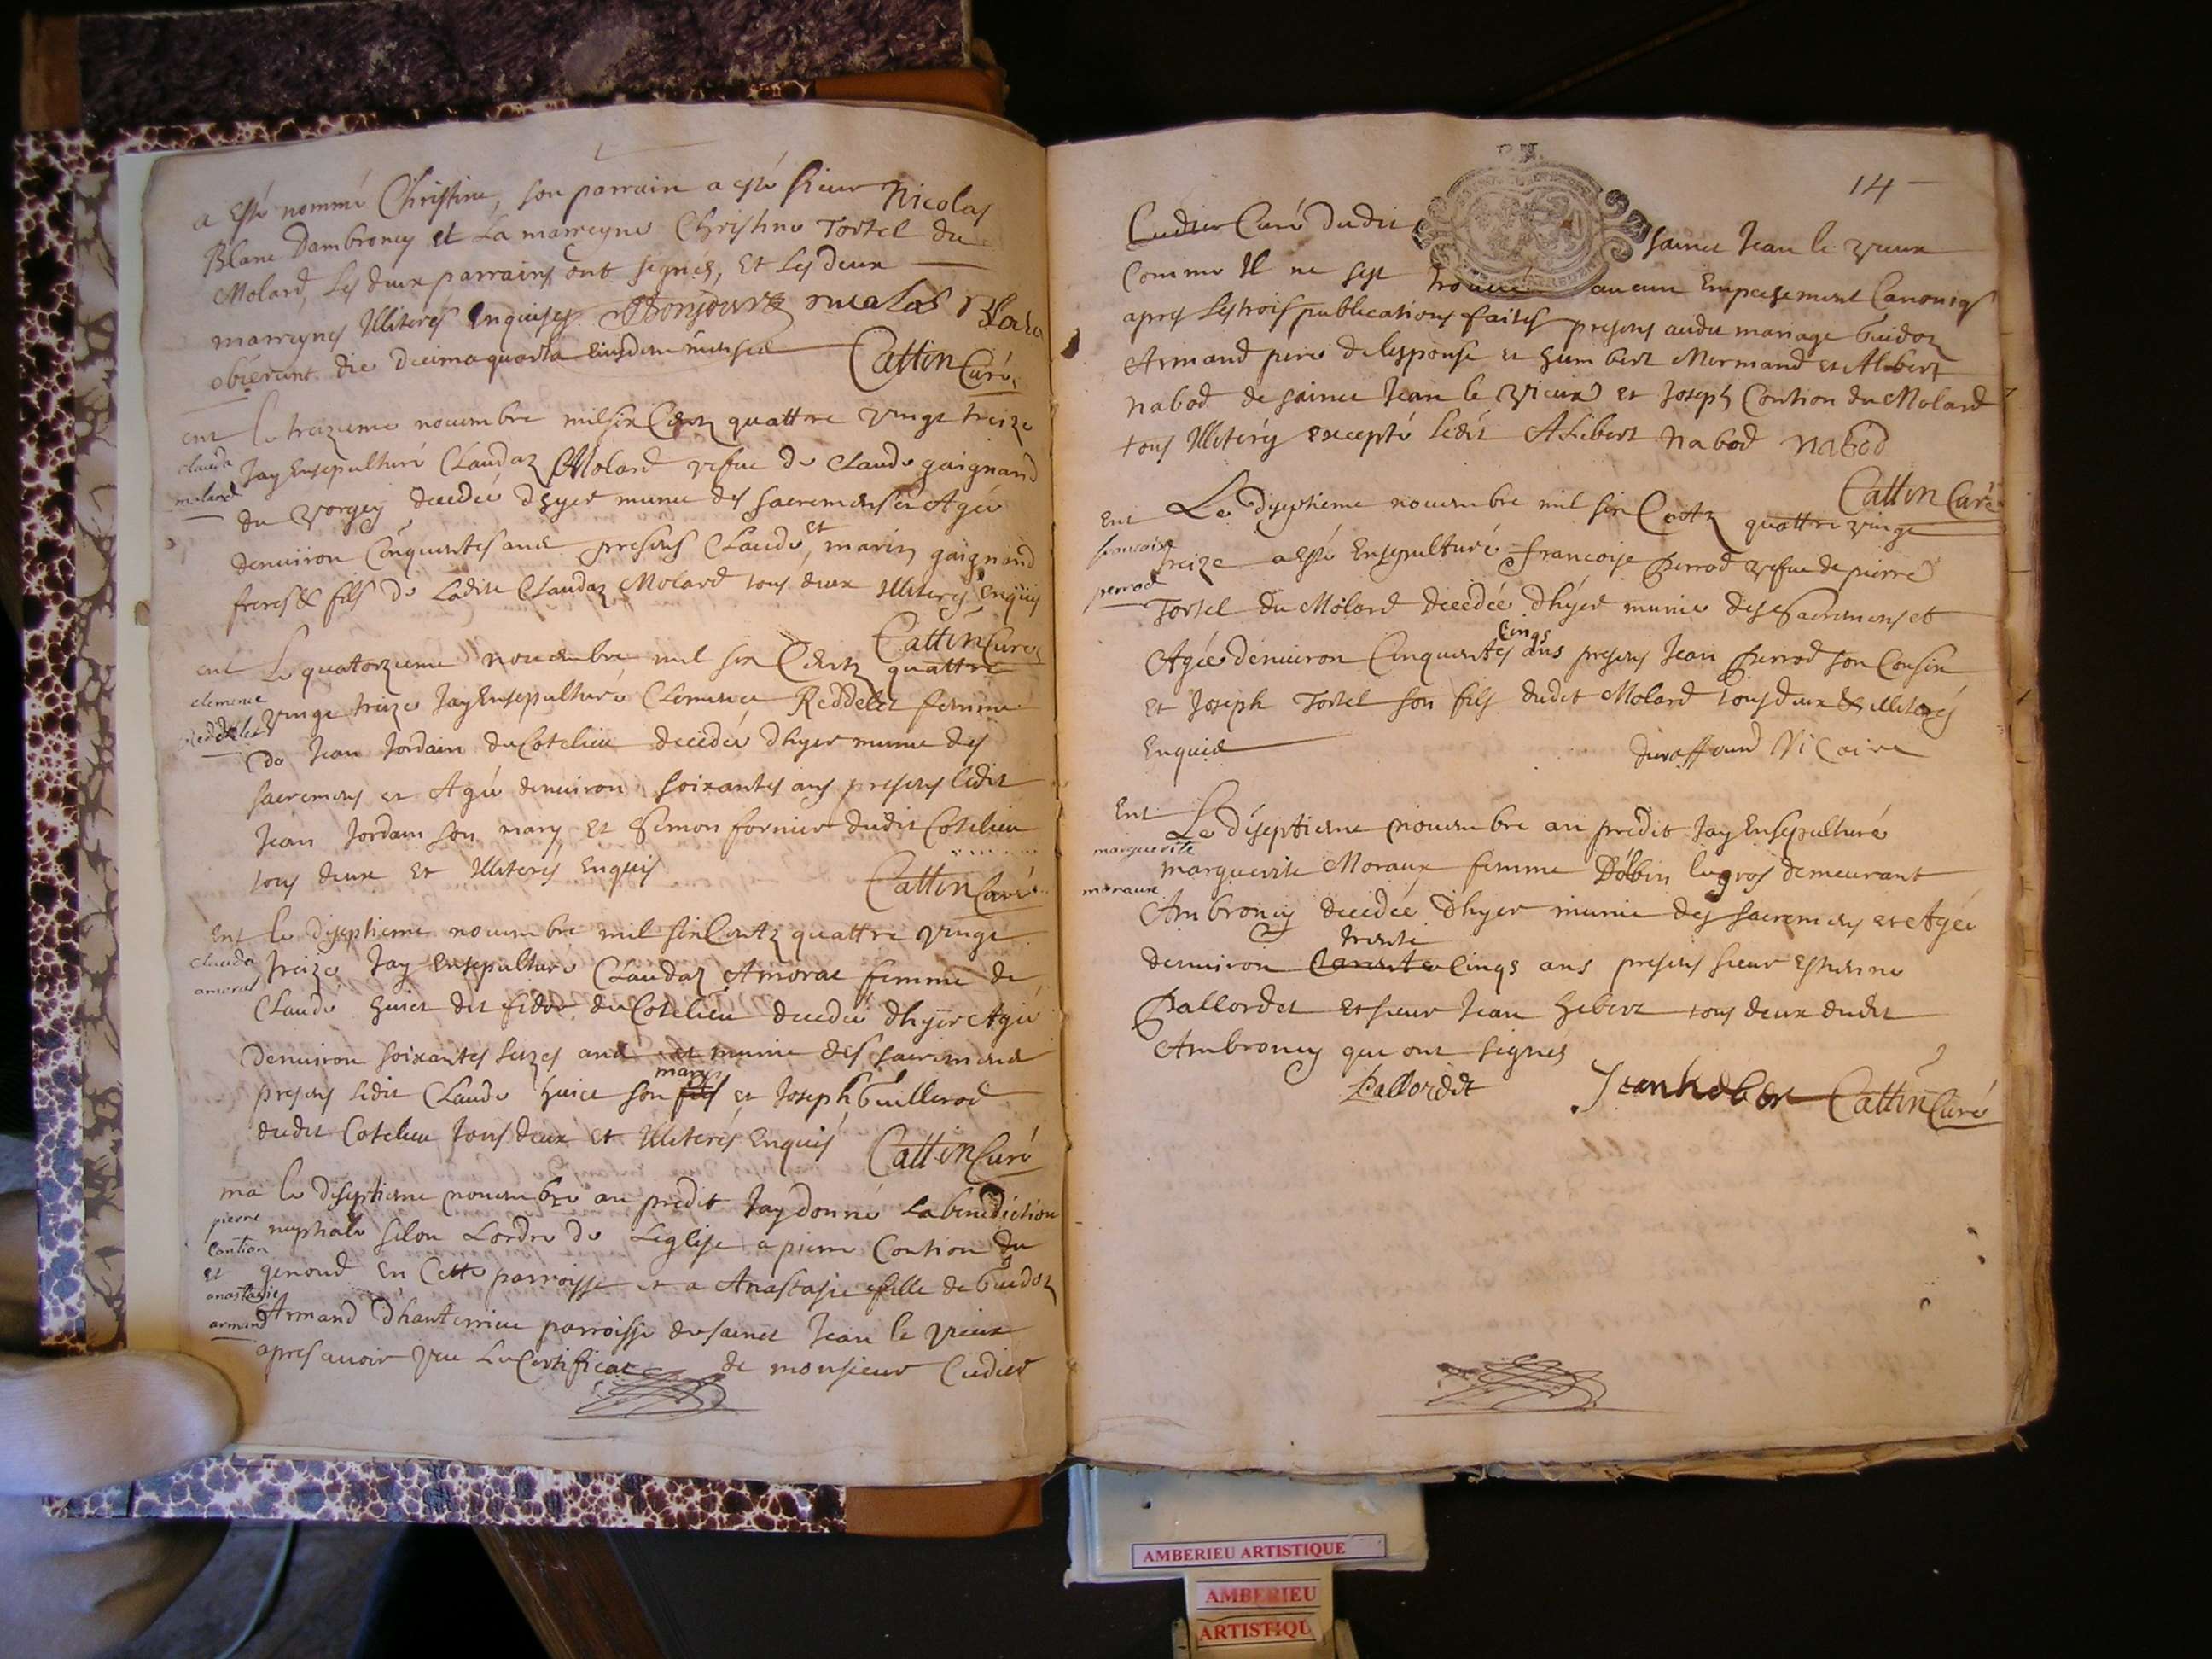 a esté nommé Christine, son parrain a esté sieur Nicolas
Blanc Dambroney et La marreyne Christine Tortel du
Molard, Les deux parrains ont signés, et Les deux
marreynes Illiterés Enquises Bonjour nicolas Blanc
obierant die decimaquarta Eiusdem mensis Cattin Curé
ent le treizieme novembre mil six Centz quattre vingt treize
clauda
molard
Jay Ensepulturé Claudaz Molard vefue de Claude gaignand
du vorgey decedée dhyer munie des sacremens et Agée
denuiron Cinquantes ans presens Claude et marin gaignand
freres & fils de Ladite Claudaz Molard tous deux Illiterés Enquis
Cattin Curé
ent Le quatorzieme nouembre mil six Centz quattre
clemence
Reddelet
vingt treize Jay Ensepulturé Clemence Reddelet femme
de Jean Jordain du Cotelieu decedée dhyer munie des
sacremens et Agée denuiron soixantes ans presens ledit
Jean Jordain son mary et Simon fornier dudit Cotelieu
tous deux et Illiterés Enquis
Cattin Curé
ent le diseptieme nouembre mil six Centz quattre vingt
clauda
amorat
treize Jay Ensepulturé Claudaz Amorat femme de
Claude huict dit fidor du Cotelieu decedée dhyer Agée
denuiron soixantes seizes ans et munie des sacremens
presens ledit Claude huict son fils mary et Joseph Guillerod
dudit Cotelieu tous deux et Illiterés Enquis Cattin Curé
ma le diseptieme nouembre an predit Jay donné La benediction
pierre
Contion
et
anastasie
armand
nuptiale selon Lordre de Leglise a pierre Contion du
genoud en Cette parroisse et a Anastasie fille de Guidoz
Armand d'hauterriue parroisse de sainct Jean le vieux
apres auoir veu Le Certificat de monsieur Cudier
14
Cudier Curé dudit sainct Jean le vieux
Comme Il ne sest trouué aucun Empechement Canoniq
apres Les trois publications faites presens audit mariage Guidoz
Armand pere de lespouse et humbert Mermand et Alibert
nabod de sainct Jean le vieux et Joseph Contion du Molard
tous Illiterés excepté ledit Alibert nabod nabod
Cattin Curé
Ent Le diseptieme nouembre mil six Centz quattre vingt
francoise
perrod
treize a esté Ensepulturé francoise perrod vefue de pierre
Tortel du Molard decedée dhyer munie des Sacremens et
Agée denuiron Cinquantes Cinqs ans presens Jean perrod son Cousin
et Joseph Tortel son fils dudit Molard tous deux & illiterés
Enquis
duraffourd Vicaire
Ent Le diseptieme nouembre an predit Jay Ensepulturé
marguerite
moraux
marguerite Moraux femme Dalbin legros demeurant
Ambroney decedée dhyer munie des sacremens et Agée
denuiron Carante trente Cinqs ans presens sieur Estienne
Ballordet et sieur Jean hebert tous deux dudit
Ambroney qui ont signés
Ballordet Jean hebert Cattin Curé
AMBERIEU ARTISTIQUE
AMBERIEU
ARTISTIQU